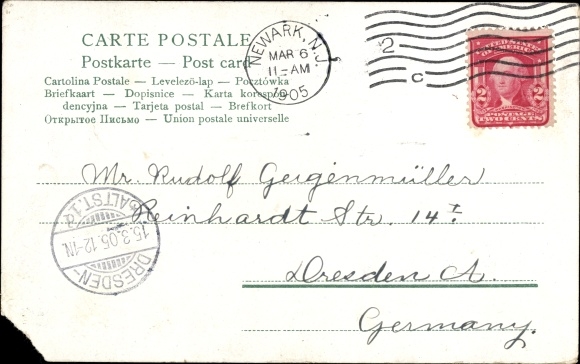 CARTE POSTALE
Postkarte — Post card
Cartolina Postale — Levelező-lap — Pocztówka
Briefkaart — Dopisnice — Karta korespon-
dencyjna — Tarjeta postal — Brefkort
Открытое Письмо — Union postale universelle
NEWARK, N.J.
MAR 6
11-AM
1905
2
C
UNITED STATES
2 2
POSTAGE
TWO CENTS
Mr. Rudolf Geigenmüller
Reinhardt Str. 14 I.
Dresden A.
Germany.
DRESDEN-ALTST. 1
15.3.05. 12-1N.